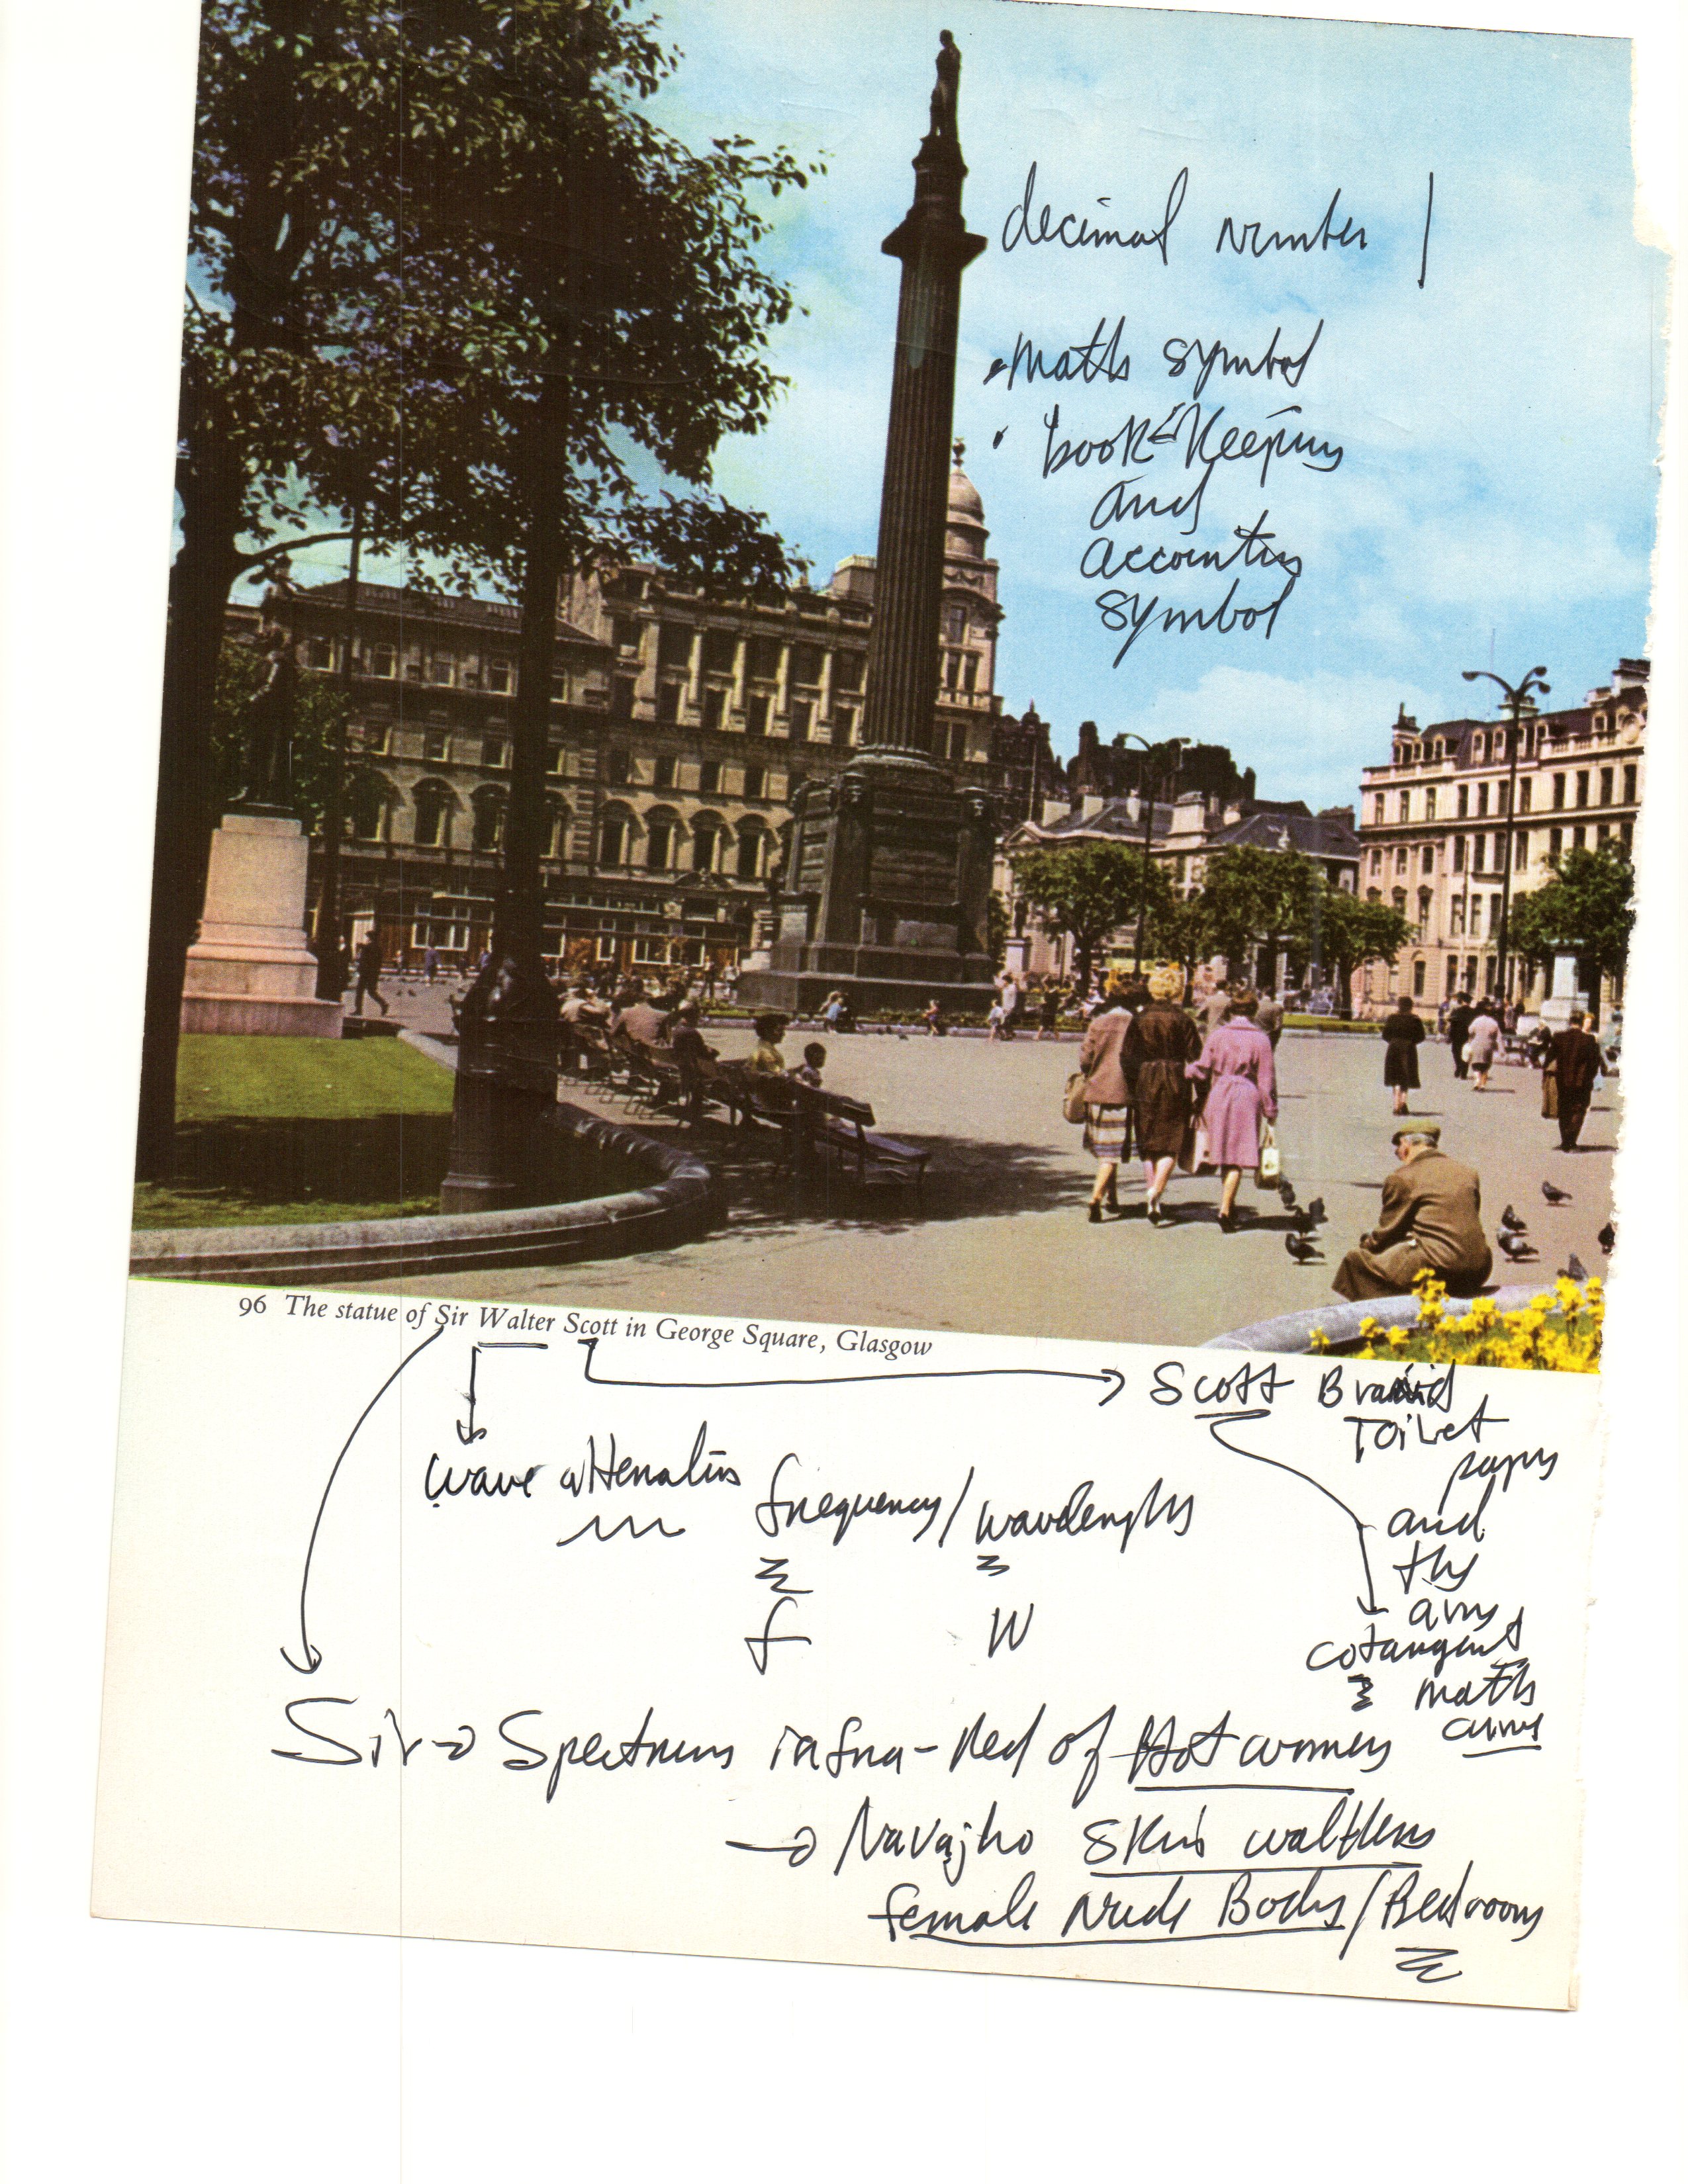 decimal number |
• Maths symbol
• book keeping
and
accounting
symbol
96 The statue of Sir Walter Scott in George Square, Glasgow
Scott Brand
Toilet
paper
and
the
cotangent
maths
wave
frequency / wavelengths
f W
Sir → Spectrum infra-Red of Hot women
→ Navajho skin
female Nude Body / Bedroom